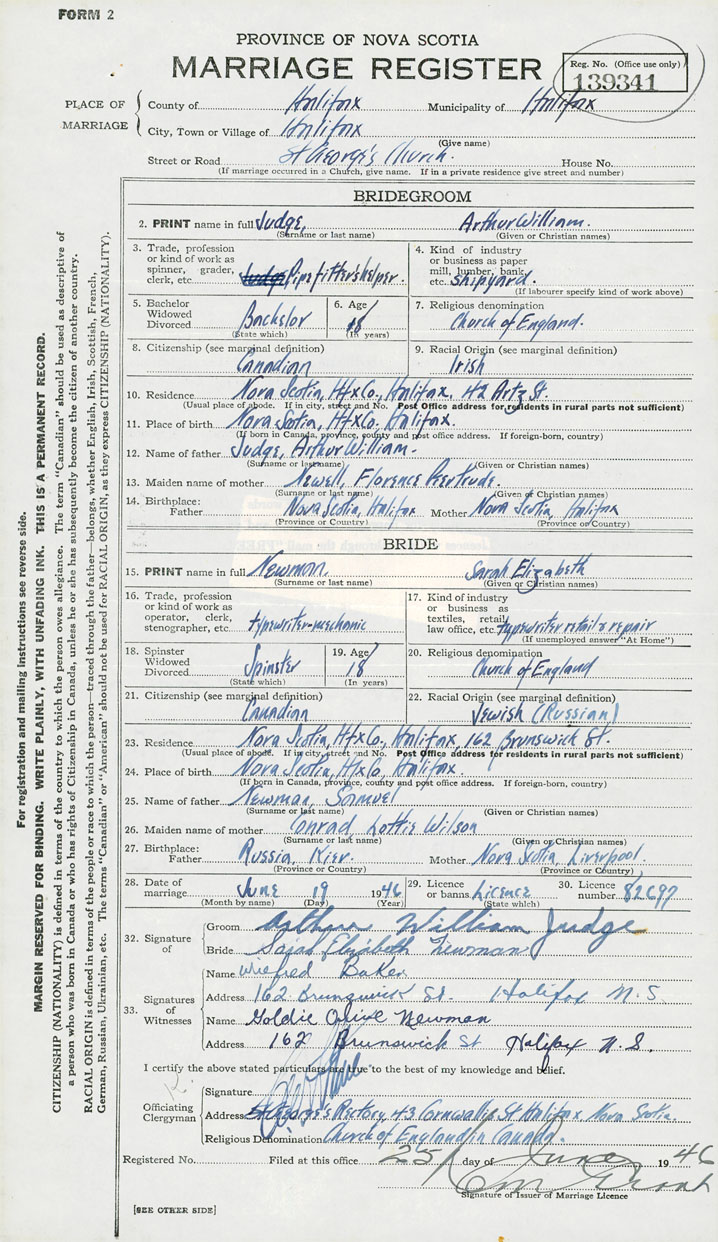 FORM 2
PROVINCE OF NOVA SCOTIA
MARRIAGE REGISTER
Reg. No. (Office use only)
139341
PLACE OF MARRIAGE
County of Halifax Municipality of Halifax
City, Town or Village of Halifax
(Give name)
Street or Road St George's Church. House No.
(If marriage occurred in a Church, give name. If in a private residence give street and number)
BRIDEGROOM
2. PRINT name in full Judge, Arthur William.
(Surname or last name) (Given or Christian names)
3. Trade, profession or kind of work as spinner, grader, clerk, etc. Judge Pipefittershelper.
4. Kind of industry or business as paper mill, lumber, bank, etc. Shipyard.
(If labourer specify kind of work above)
5. Bachelor Widowed Divorced Bachelor
(State which)
6. Age 18
(In years)
7. Religious denomination
Church of England.
8. Citizenship (see marginal definition)
Canadian
9. Racial Origin (see marginal definition)
Irish
10. Residence Nova Scotia, HfxCo, Halifax. 42 Artz St.
(Usual place of abode. If in city, street and No. Post Office address for residents in rural parts not sufficient)
11. Place of birth Nova Scotia, HfxCo. Halifax.
(If born in Canada, province, county and post office address. If foreign-born, country)
12. Name of father Judge, Arthur William.
(Surname or last name) (Given or Christian names)
13. Maiden name of mother Newell, Florence Gertrude.
(Surname or last name) (Given or Christian names)
14. Birthplace: Father Nova Scotia, Halifax Mother Nova Scotia Halifax
(Province or Country) (Province or Country)
BRIDE
15. PRINT name in full Newman Sarah Elizabeth
(Surname or last name) (Given or Christian names)
16. Trade, profession or kind of work as operator, clerk, stenographer, etc. typewriter-mechanic
17. Kind of industry or business as textiles, retail, law office, etc. typewriter retail & repair
(If unemployed answer "At Home")
18. Spinster Widowed Divorced Spinster
(State which)
19. Age 18
(In years)
20. Religious denomination
Church of England
21. Citizenship (see marginal definition)
Canadian
22. Racial Origin (see marginal definition)
Jewish (Russian)
23. Residence Nova Scotia, HfxCo., Halifax, 162 Brunswick St.
(Usual place of abode. If in city, street and No. Post Office address for residents in rural parts not sufficient)
24. Place of birth Nova Scotia, HfxCo, Halifax.
(If born in Canada, province, county and post office address. If foreign-born, country)
25. Name of father Newman, Samuel
(Surname or last name) (Given or Christian names)
26. Maiden name of mother Conrad Lottie Wilson
(Surname or last name) (Given or Christian names)
27. Birthplace: Father Russia, Kiev. Mother Nova Scotia, Liverpool.
(Province or Country) (Province or Country)
28. Date of marriage June 19 1946
(Month by name) (Day) (Year)
29. Licence or banns Licence
(State which)
30. Licence number 82697
32. Signature of
Groom Arthur William Judge
Bride Sarah Elizabeth Newman
33. Signatures of Witnesses
Name Baker
Address 162 Brunswick St. Halifax N.S.
Name Goldie Olive Newman
Address 162 Brunswick St Halifax N.S.
I certify the above stated particulars are true to the best of my knowledge and belief.
Officiating Clergyman
Signature
Address St George's Rectory, 43 Cornwallis St Halifax, Nova Scotia.
Religious Denomination Church of England in Canada.
Registered No. Filed at this office 25 day of June 1946
Signature of Issuer of Marriage Licence
[SEE OTHER SIDE]
For registration and mailing instructions see reverse side.
MARGIN RESERVED FOR BINDING. WRITE PLAINLY, WITH UNFADING INK. THIS IS A PERMANENT RECORD.
CITIZENSHIP (NATIONALITY) is defined in terms of the country to which the person owes allegiance. The term "Canadian" should be used as descriptive of
a person who was born in Canada or who has rights of Citizenship in Canada, unless he or she has subsequently become the citizen of another country.
RACIAL ORIGIN is defined in terms of the people or race to which the person—traced through the father—belongs, whether English, Irish, Scottish, French,
German, Russian, Ukrainian, etc. The terms "Canadian" or "American" should not be used for RACIAL ORIGIN, as they express CITIZENSHIP (NATIONALITY).